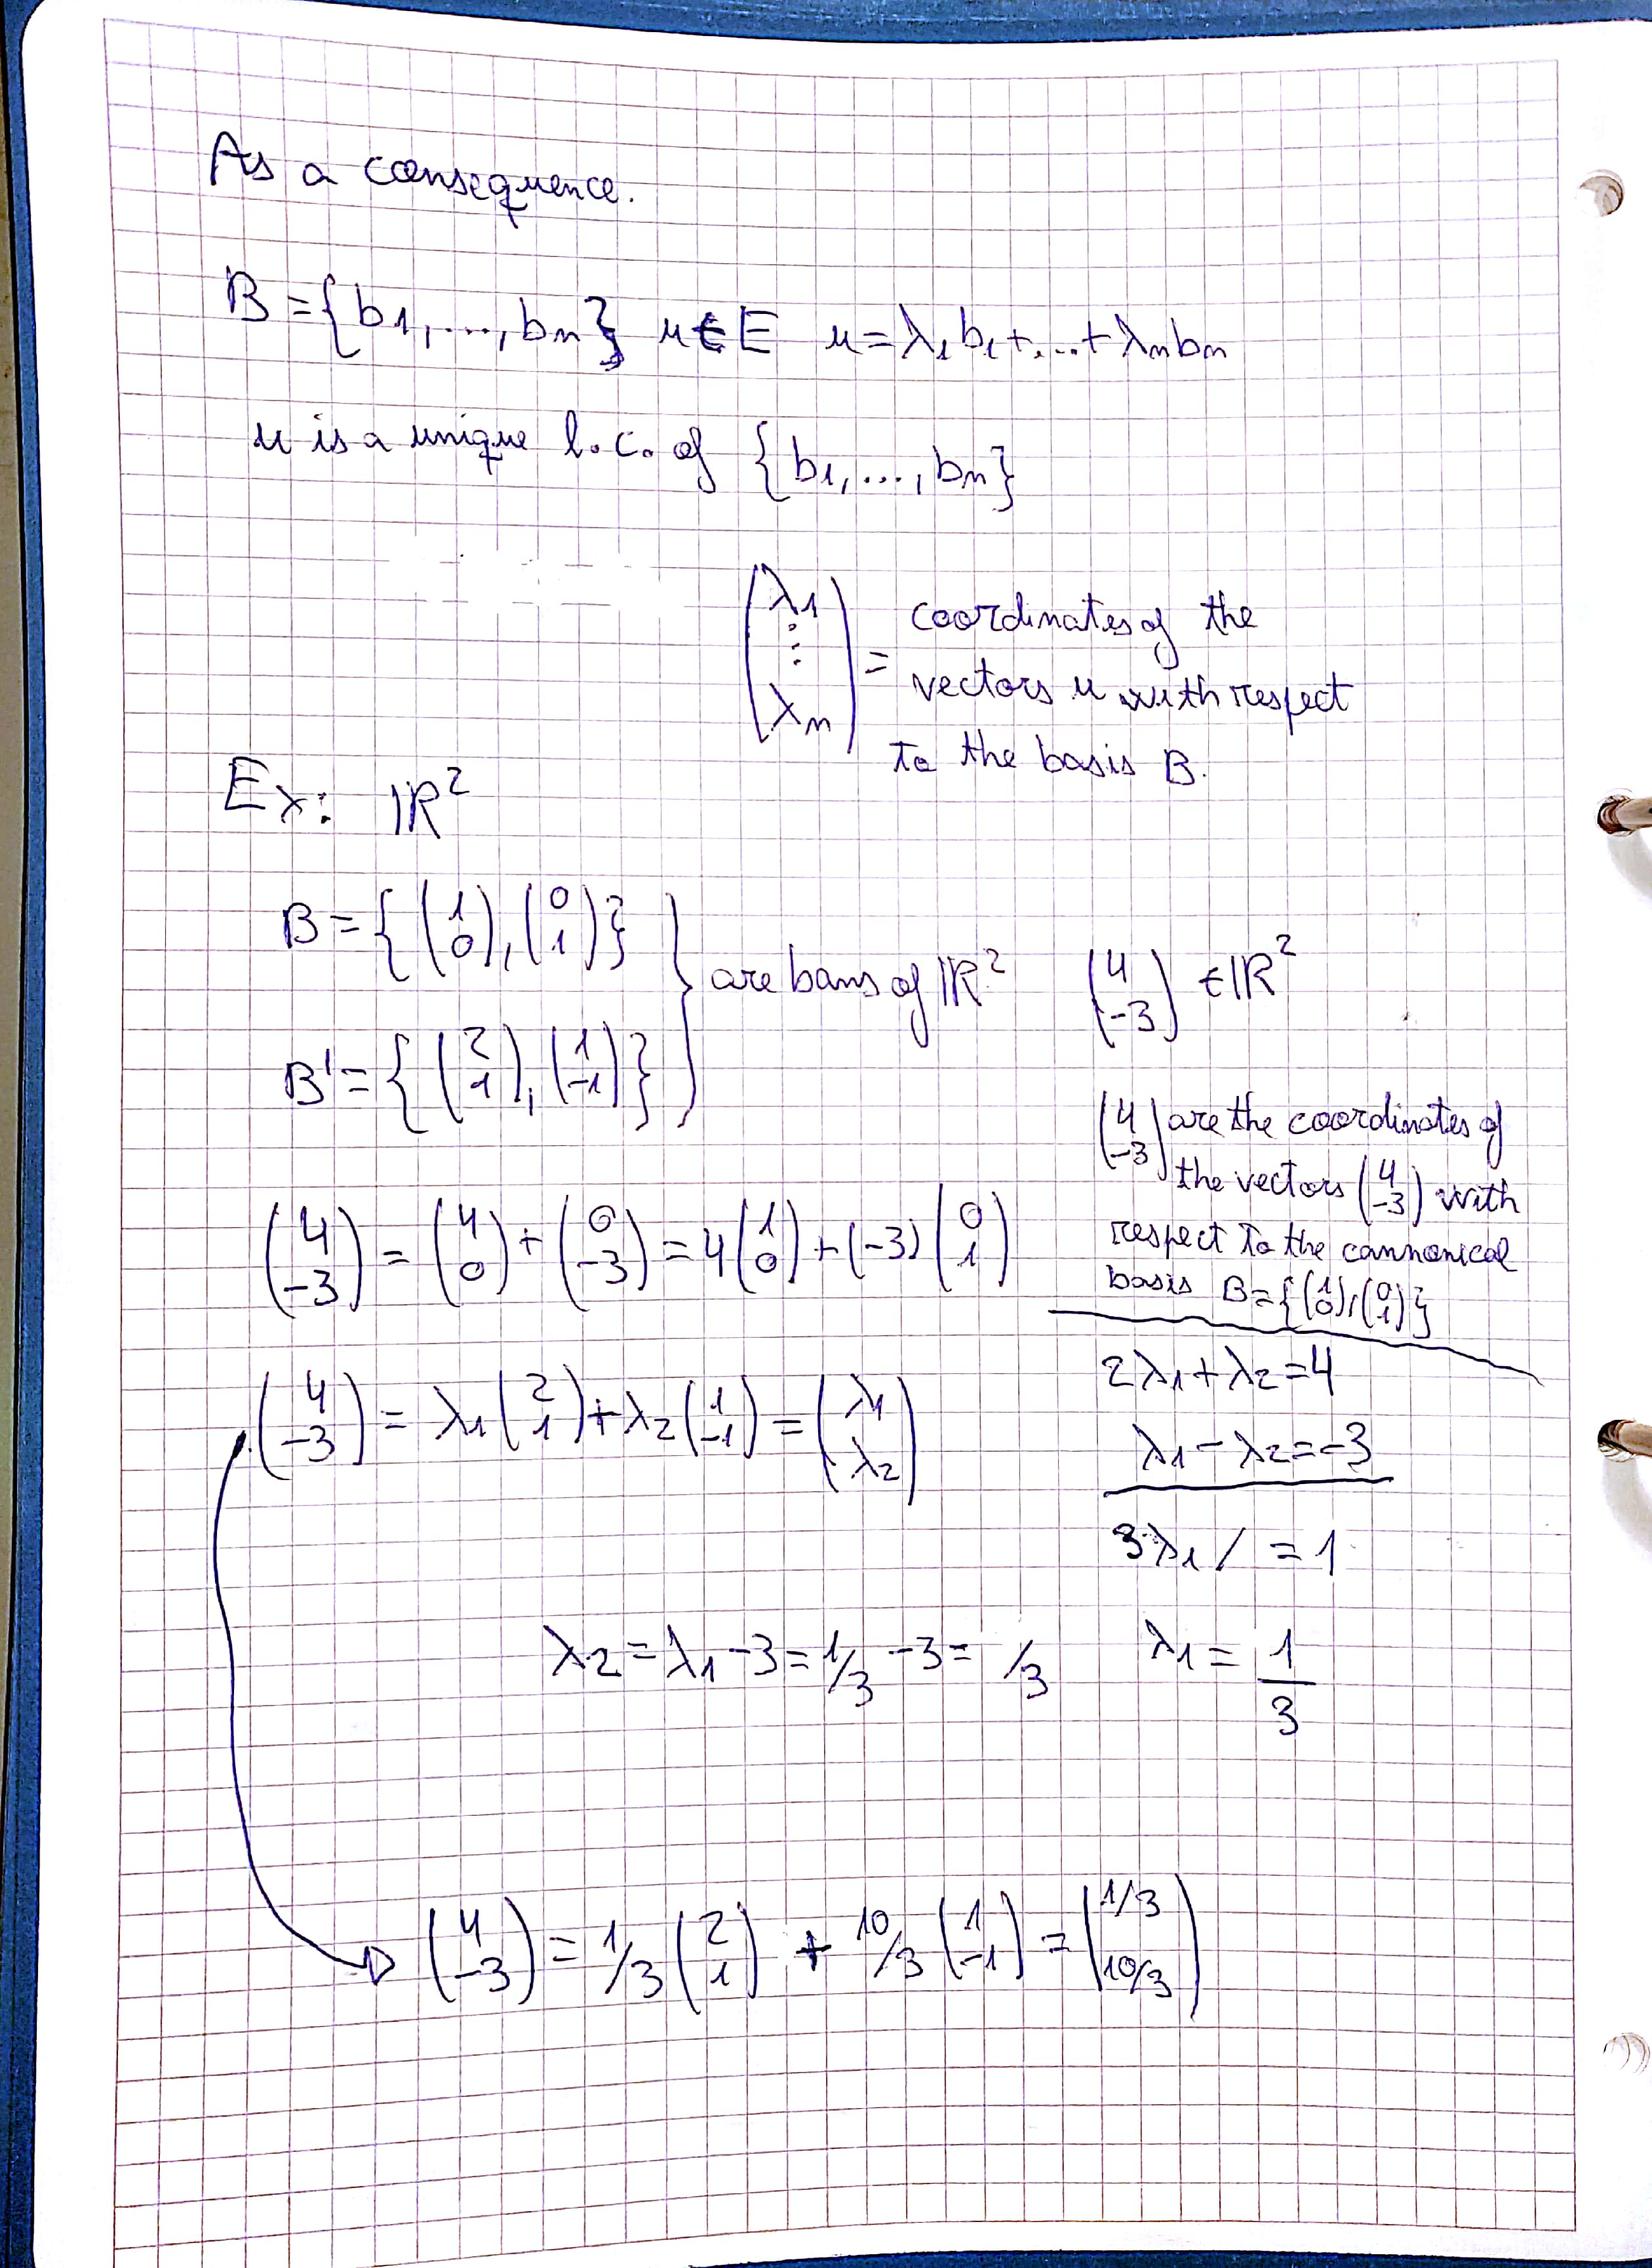 As a consequence.
B = {b1, ..., bn} u ∈ E u = λ1 b1 + ... + λn bn
u is a unique l.c. of {b1, ..., bn}
(λ1 ⋮ λn) = coordinates of the
vectors u with respect
to the basis B.
Ex: ℝ²
B = {(1 0), (0 1)}
B' = {(2 1), (1 -1)}
} are basis of ℝ²
(4 -3) ∈ ℝ²
(4 -3) are the coordinates of
the vectors (4 -3) with
respect to the cannonical
basis B = {(1 0), (0 1)}
(4 -3) = (4 0) + (0 -3) = 4 (1 0) + (-3) (0 1)
(4 -3) = λ1 (2 1) + λ2 (1 -1) = (λ1 λ2)
2λ1 + λ2 = 4
λ1 - λ2 = -3
3λ1 / = 1
λ2 = λ1 - 3 = 1/3 - 3 = /3
λ1 = 1/3
(4 -3) = 1/3 (2 1) + 10/3 (1 -1) = (1/3 10/3)